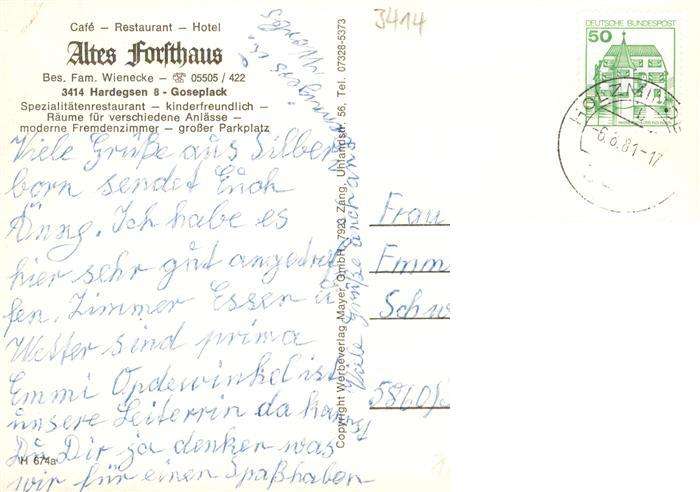 Café – Restaurant – Hotel
Altes Forsthaus
Bes. Fam. Wienecke – ☎ 05505 / 422
3414 Hardegsen 8 - Goseplack
Spezialitätenrestaurant – kinderfreundlich –
Räume für verschiedene Anlässe –
moderne Fremdenzimmer – großer Parkplatz
Viele Grüße aus Silber
born sendet Euch
Änne. Ich habe es
hier sehr gut angetrof
fen. Zimmer Essen u
Wetter sind prima
Emmi Opdewinkel ist
unsere Leiterrin da kannst
Du Dir ja denken was
wir für einen Spaß haben
Viele Grüße auch an
H 674a
Copyright Werbeverlag Mayer GmbH, 7923 Zang, Uhlandstr. 56, Tel. 07328-5373
3414
DEUTSCHE BUNDESPOST
50
HOLZMINDEN
-6.8.81-17
Frau
Emm
Schw